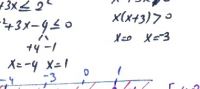 +3x ≤ 2²
x(x+3) > 0
²+3x-4 ≤ 0
+4 -1
x=0 x=-3
x=-4 x=1
-4 -3 0 1